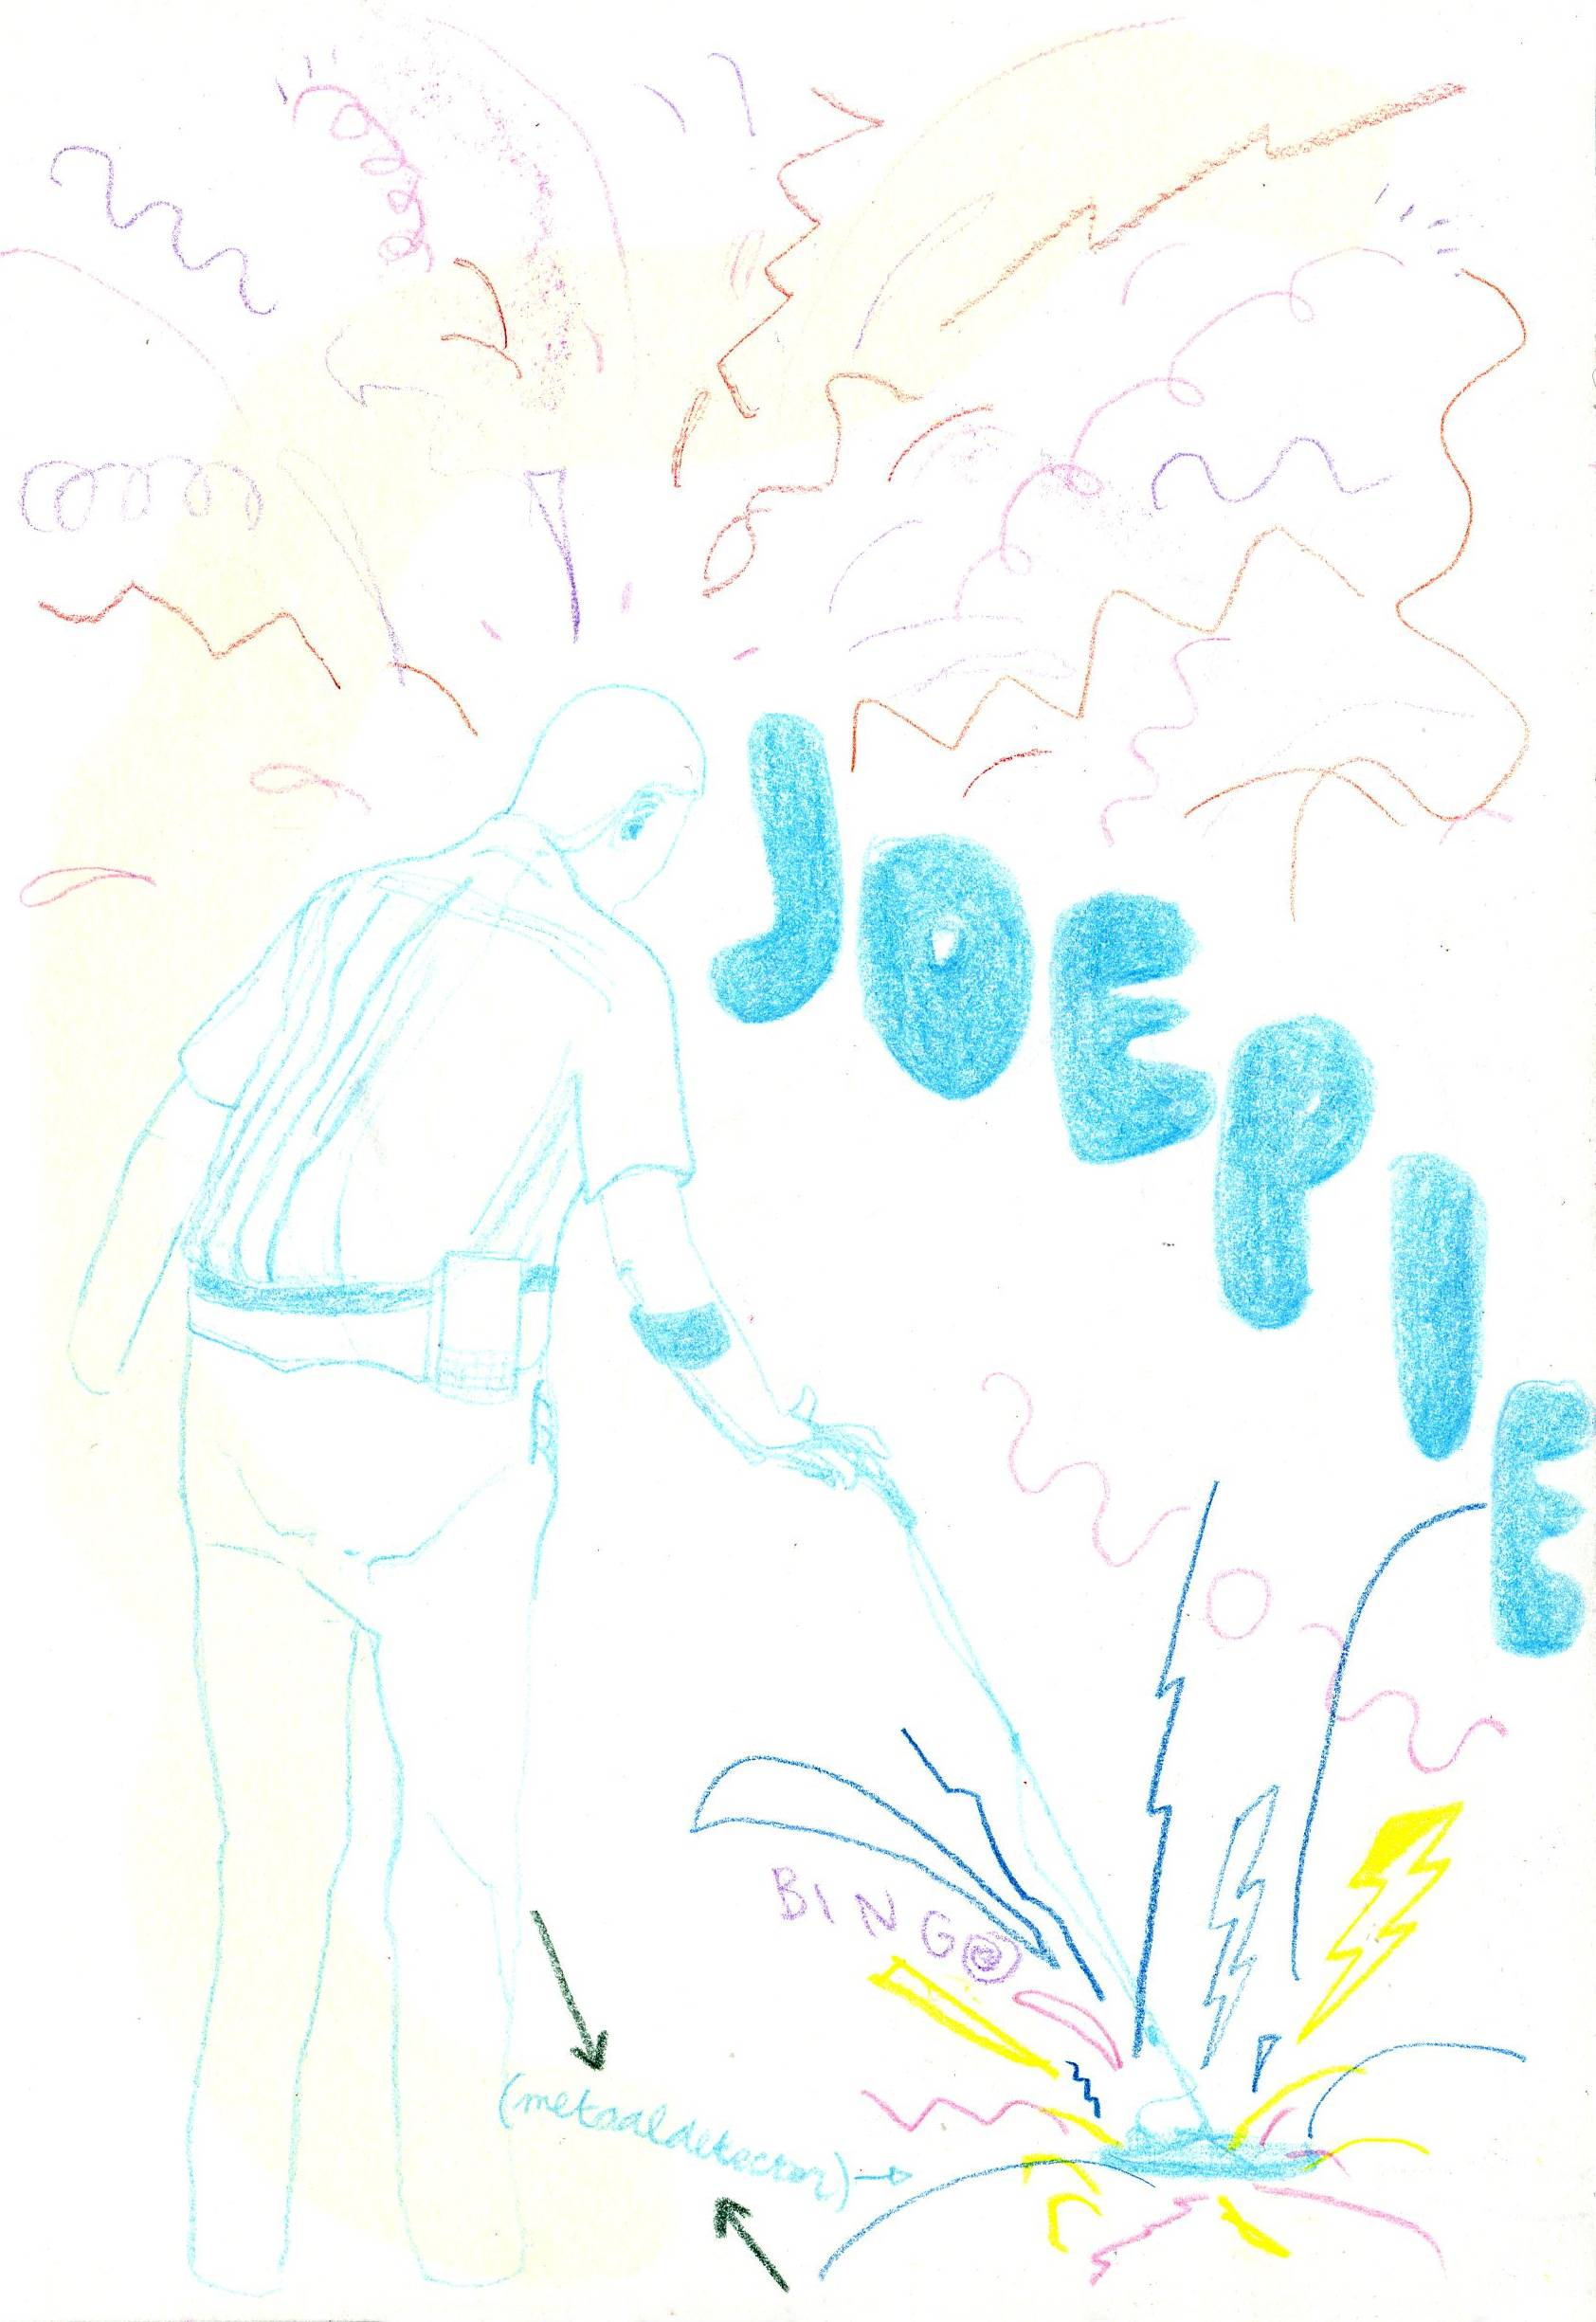 JOEPIE
BINGO
(metaaldetector)